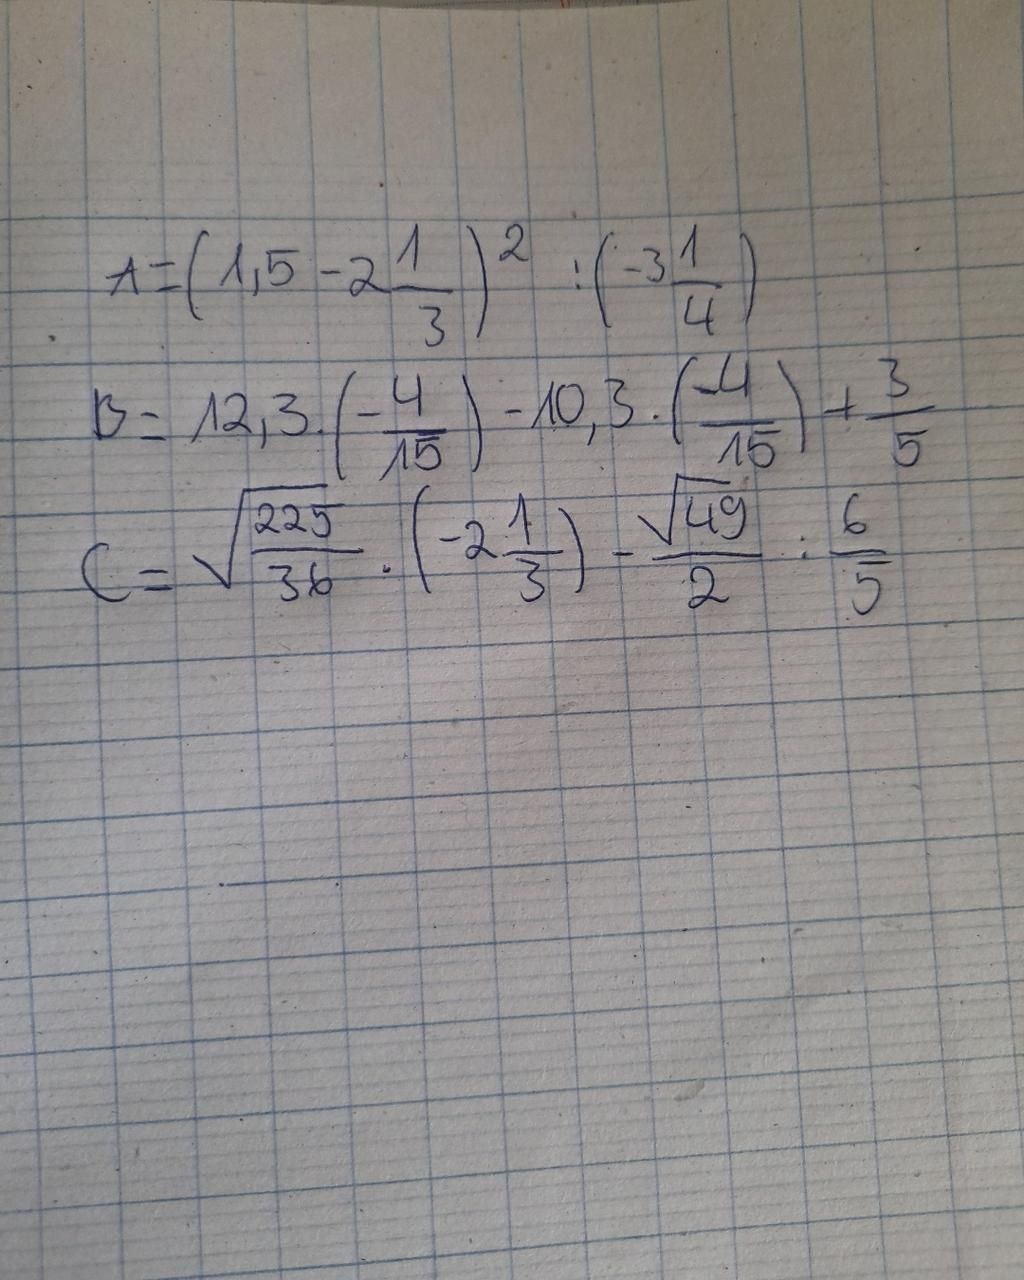 A = (1,5 - 2 1/3)² : (-3 1/4)
B = 12,3 . (-4/15) - 10,3 . (-4/15) + 3/5
C = √(225/36) . (-2 1/3) - √49/2 : 6/5